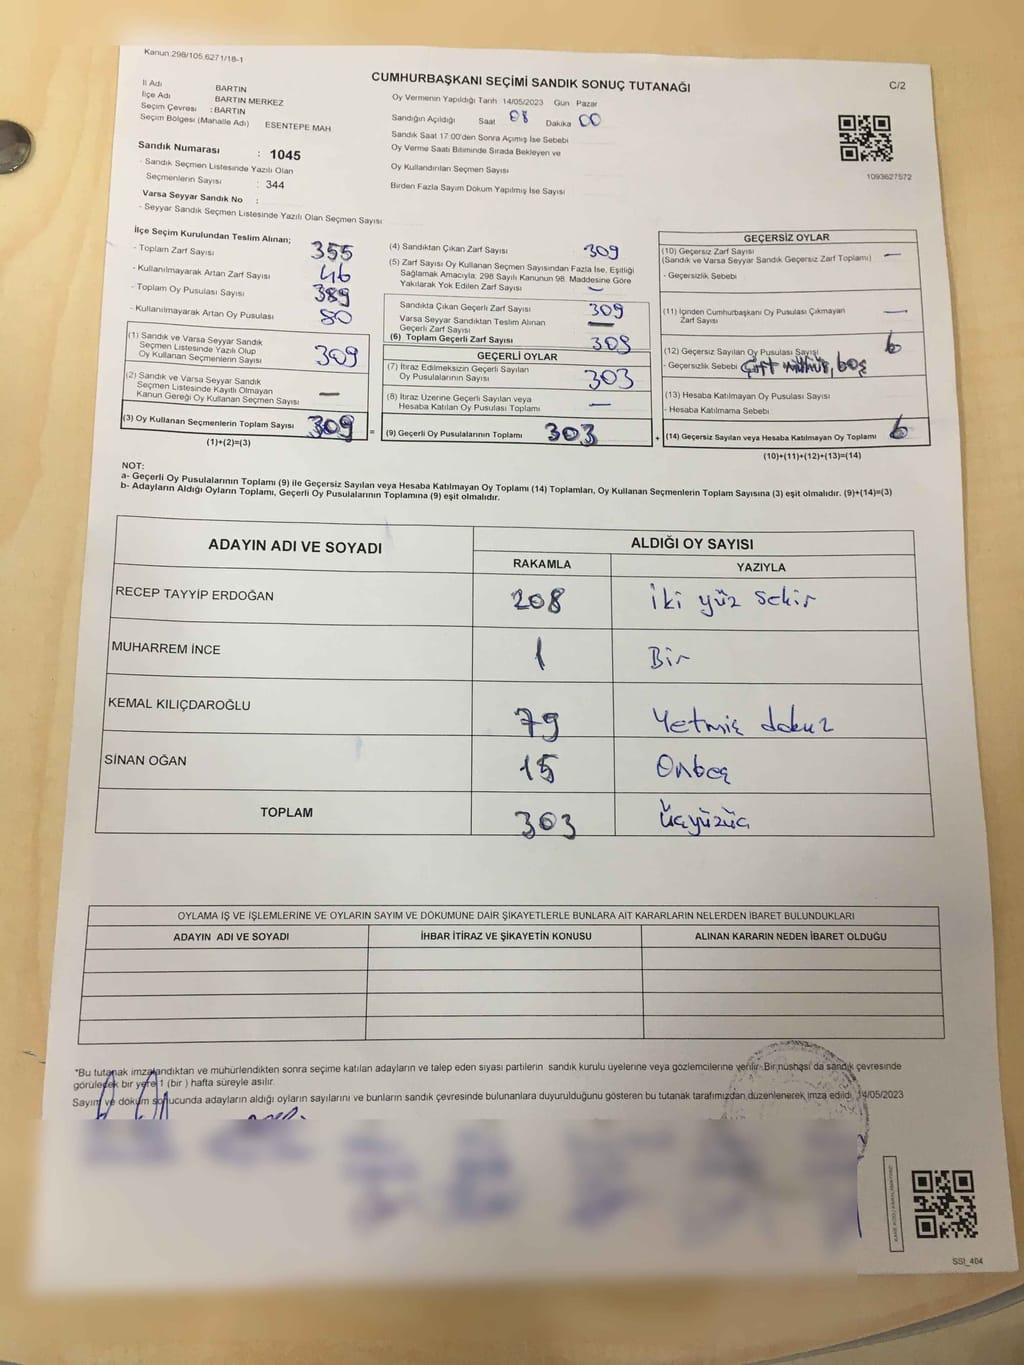 Kanun:298/105,6271/18-1
CUMHURBAŞKANI SEÇİMİ SANDIK SONUÇ TUTANAĞI
C/2
İl Adı BARTIN
İlçe Adı BARTIN MERKEZ
Seçim Çevresi : BARTIN
Seçim Bölgesi (Mahalle Adı) ESENTEPE MAH
Sandık Numarası : 1045
- Sandık Seçmen Listesinde Yazılı Olan
Seçmenlerin Sayısı : 344
Varsa Seyyar Sandık No :
- Seyyar Sandık Seçmen Listesinde Yazılı Olan Seçmen Sayısı
Oy Vermenin Yapıldığı Tarih 14/05/2023 Gün Pazar
Sandığın Açıldığı Saat 08 Dakika 00
Sandık Saat 17:00'den Sonra Açımış İse Sebebi
Oy Verme Saati Bitiminde Sırada Bekleyen ve
Oy Kullandırılan Seçmen Sayısı
Birden Fazla Sayım Döküm Yapılmış İse Sayısı
1093627572
İlçe Seçim Kurulundan Teslim Alınan;
- Toplam Zarf Sayısı 355
- Kullanılmayarak Artan Zarf Sayısı 46
- Toplam Oy Pusulası Sayısı 389
- Kullanılmayarak Artan Oy Pusulası 80
(1) Sandık ve Varsa Seyyar Sandık
Seçmen Listesinde Yazılı Olup
Oy Kullanan Seçmenlerin Sayısı 309
(2) Sandık ve Varsa Seyyar Sandık
Seçmen Listesinde Kayıtlı Olmayan
Kanun Gereği Oy Kullanan Seçmen Sayısı —
(3) Oy Kullanan Seçmenlerin Toplam Sayısı 309
(1)+(2)=(3)
(4) Sandıktan Çıkan Zarf Sayısı 309
(5) Zarf Sayısı Oy Kullanan Seçmen Sayısından Fazla İse, Eşitliği
Sağlamak Amacıyla; 298 Sayılı Kanunun 98. Maddesine Göre
Yakılarak Yok Edilen Zarf Sayısı —
Sandıkta Çıkan Geçerli Zarf Sayısı 309
Varsa Seyyar Sandıktan Teslim Alınan
Geçerli Zarf Sayısı —
(6) Toplam Geçerli Zarf Sayısı 309
GEÇERLİ OYLAR
(7) İtiraz Edilmeksizin Geçerli Sayılan
Oy Pusulalarının Sayısı 303
(8) İtiraz Üzerine Geçerli Sayılan veya
Hesaba Katılan Oy Pusulası Toplamı —
= (9) Geçerli Oy Pusulalarının Toplamı 303
GEÇERSİZ OYLAR
(10) Geçersiz Zarf Sayısı
(Sandık ve Varsa Seyyar Sandık Geçersiz Zarf Toplamı) —
- Geçersizlik Sebebi
(11) İçinden Cumhurbaşkanı Oy Pusulası Çıkmayan
Zarf Sayısı —
(12) Geçersiz Sayılan Oy Pusulası Sayısı 6
- Geçersizlik Sebebi Çift mühür, boş
(13) Hesaba Katılmayan Oy Pusulası Sayısı
- Hesaba Katılmama Sebebi
+ (14) Geçersiz Sayılan veya Hesaba Katılmayan Oy Toplamı 6
(10)+(11)+(12)+(13)=(14)
NOT:
a- Geçerli Oy Pusulalarının Toplamı (9) ile Geçersiz Sayılan veya Hesaba Katılmayan Oy Toplamı (14) Toplamları, Oy Kullanan Seçmenlerin Toplam Sayısına (3) eşit olmalıdır. (9)+(14)=(3)
b- Adayların Aldığı Oyların Toplamı, Geçerli Oy Pusulalarının Toplamına (9) eşit olmalıdır.
ADAYIN ADI VE SOYADI ALDIĞI OY SAYISI
RAKAMLA YAZIYLA
RECEP TAYYİP ERDOĞAN 208 İki yüz sekiz
MUHARREM İNCE 1 Bir
KEMAL KILIÇDAROĞLU 79 Yetmiş dokuz
SİNAN OĞAN 15 Onbeş
TOPLAM 303 Üçyüzüç
OYLAMA İŞ VE İŞLEMLERİNE VE OYLARIN SAYIM VE DÖKÜMÜNE DAİR ŞİKAYETLERLE BUNLARA AİT KARARLARIN NELERDEN İBARET BULUNDUKLARI
ADAYIN ADI VE SOYADI İHBAR İTİRAZ VE ŞİKAYETİN KONUSU ALINAN KARARIN NEDEN İBARET OLDUĞU
*Bu tutanak imzalandıktan ve mühürlendikten sonra seçime katılan adayların ve talep eden siyasi partilerin sandık kurulu üyelerine veya gözlemcilerine verilir. Bir nüshası da sandık çevresinde
görülecek bir yere 1 (bir ) hafta süreyle asılır.
Sayım ve döküm sonucunda adayların aldığı oyların sayılarını ve bunların sandık çevresinde bulunanlara duyurulduğunu gösteren bu tutanak tarafımızdan düzenlenerek imza edildi. 14/05/2023
SSI_404